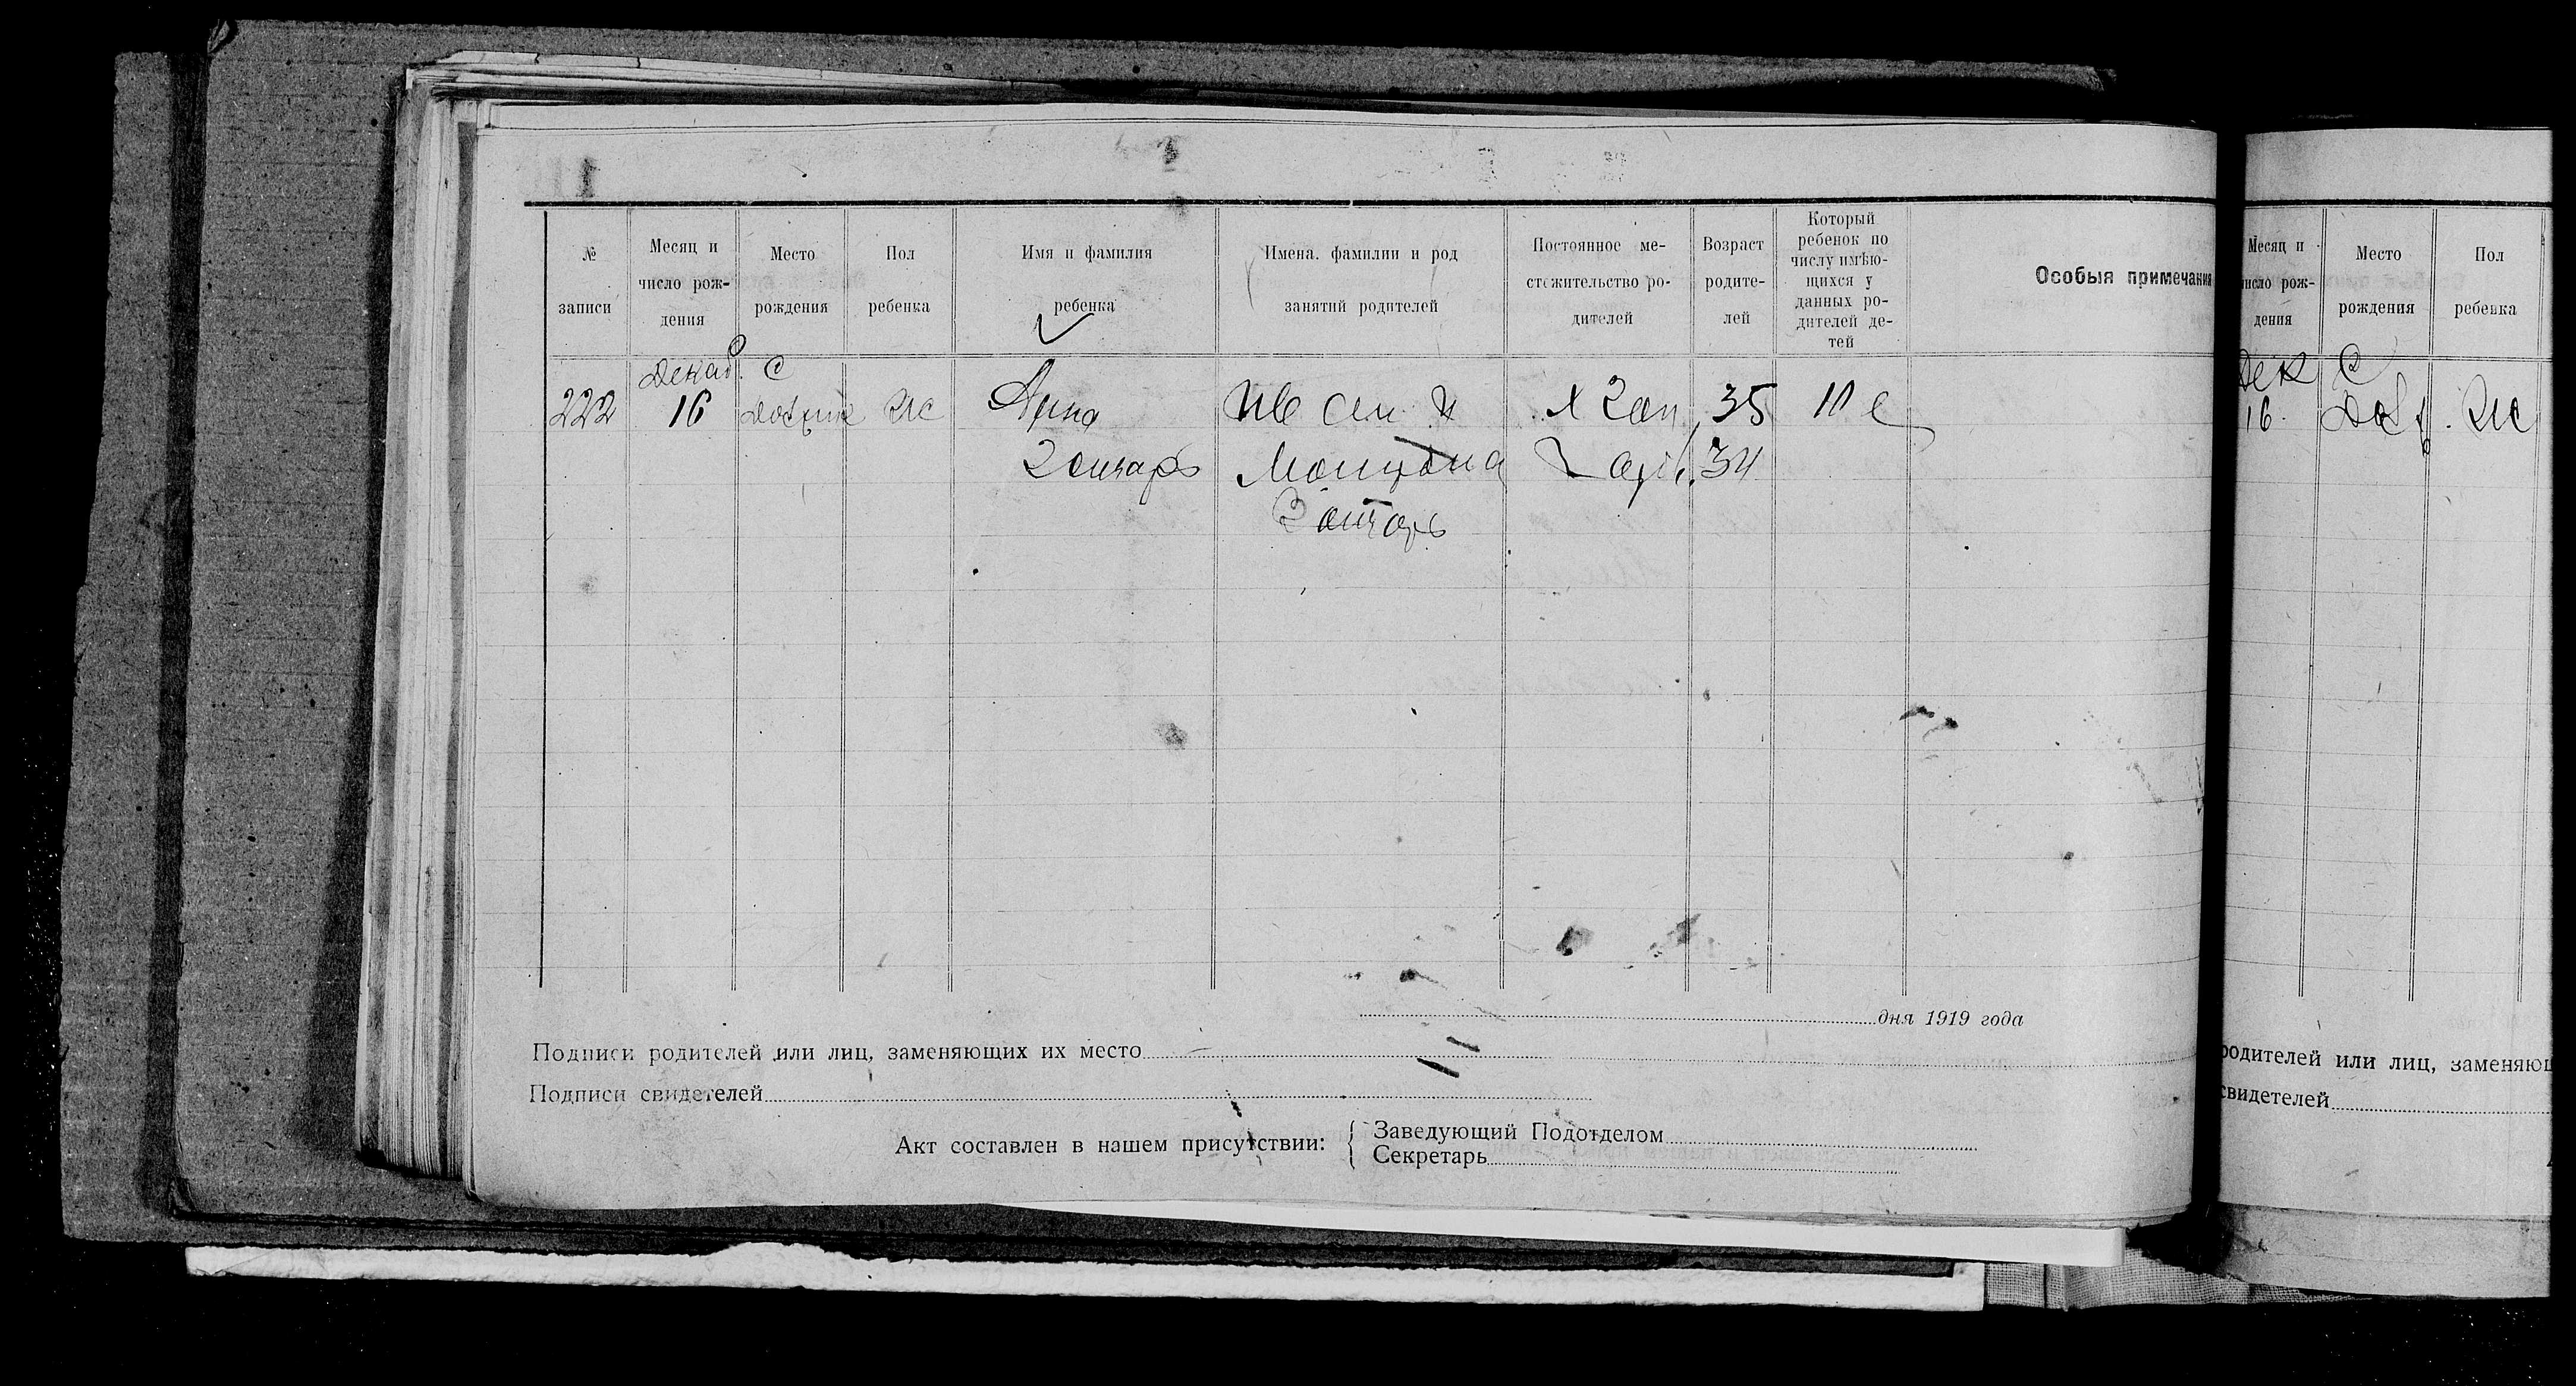 № записи
Месяц и число рождения
Место рождения
Пол ребенка
Имя и фамилия ребенка
Имена, фамилии и род занятий родителей
Постоянное местожительство родителей
Возраст родителей
Который ребенок по числу имѣющихся у данных родителей детей
Особыя примечания
222
Декаб. 16
С
Ж
Анна
Гончарь
Ив Сем и
Гончарь
35
34
10 е
дня 1919 года
Подписи родителей или лиц, заменяющих их место
Подписи свидетелей
Акт составлен в нашем присутствии:
Заведующий Подотделом
Секретарь
Месяц и число рождения
Место рождения
Пол ребенка
Дек 16
С
Ж
родителей или лиц, заменяющ
свидетелей